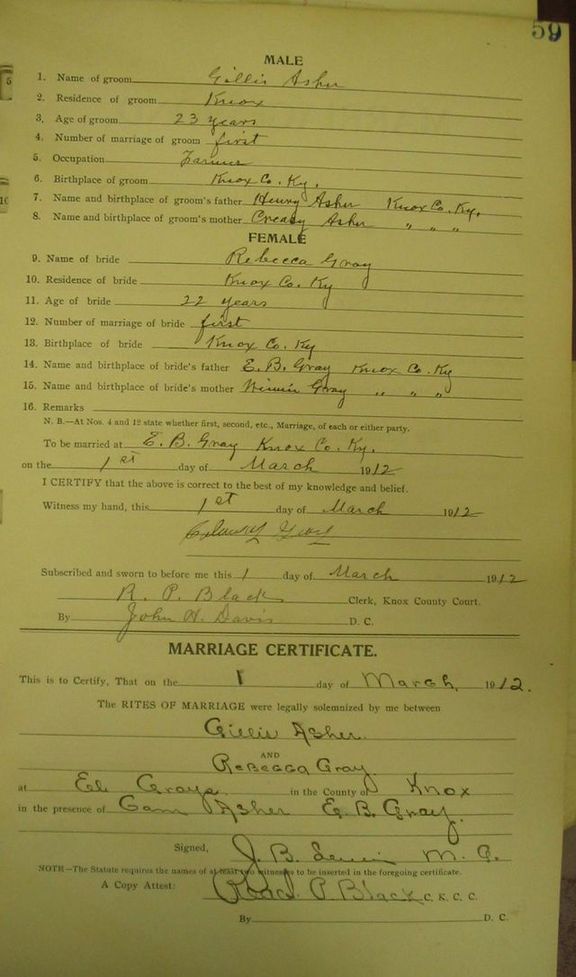 59
MALE
1. Name of groom Gillis Asher
2. Residence of groom Knox
3. Age of groom 23 years
4. Number of marriage of groom first
5. Occupation Farmer
6. Birthplace of groom Knox Co. Ky.
7. Name and birthplace of groom's father Henry Asher Knox Co. Ky.
8. Name and birthplace of groom's mother Creasy Asher " " "
FEMALE
9. Name of bride Rebecca Gray
10. Residence of bride Knox Co. Ky
11. Age of bride 22 years
12. Number of marriage of bride first
13. Birthplace of bride Knox Co. Ky
14. Name and birthplace of bride's father E. B. Gray Knox Co. Ky
15. Name and birthplace of bride's mother Gray " " "
16. Remarks
N. B.—At Nos. 4 and 12 state whether first, second, etc., Marriage, of each or either party.
To be married at E. B. Gray Knox Co. Ky.
on the 1st day of March 1912
I CERTIFY that the above is correct to the best of my knowledge and belief.
Witness my hand, this 1st day of March 1912
Subscribed and sworn to before me this 1 day of March 1912
R. P. Black Clerk, Knox County Court.
By John H. Davis D. C.
MARRIAGE CERTIFICATE.
This is to Certify, That on the 1 day of March, 1912.
The RITES OF MARRIAGE were legally solemnized by me between
Gillis Asher.
AND
Rebecca Gray
at Grays in the County of Knox
in the presence of Asher E. B. Gray.
Signed, J. B. M. G.
NOTE—The Statute requires the names of at least two witnesses to be inserted in the foregoing certificate.
A Copy Attest: P. Black C. K. C. C.
By D. C.